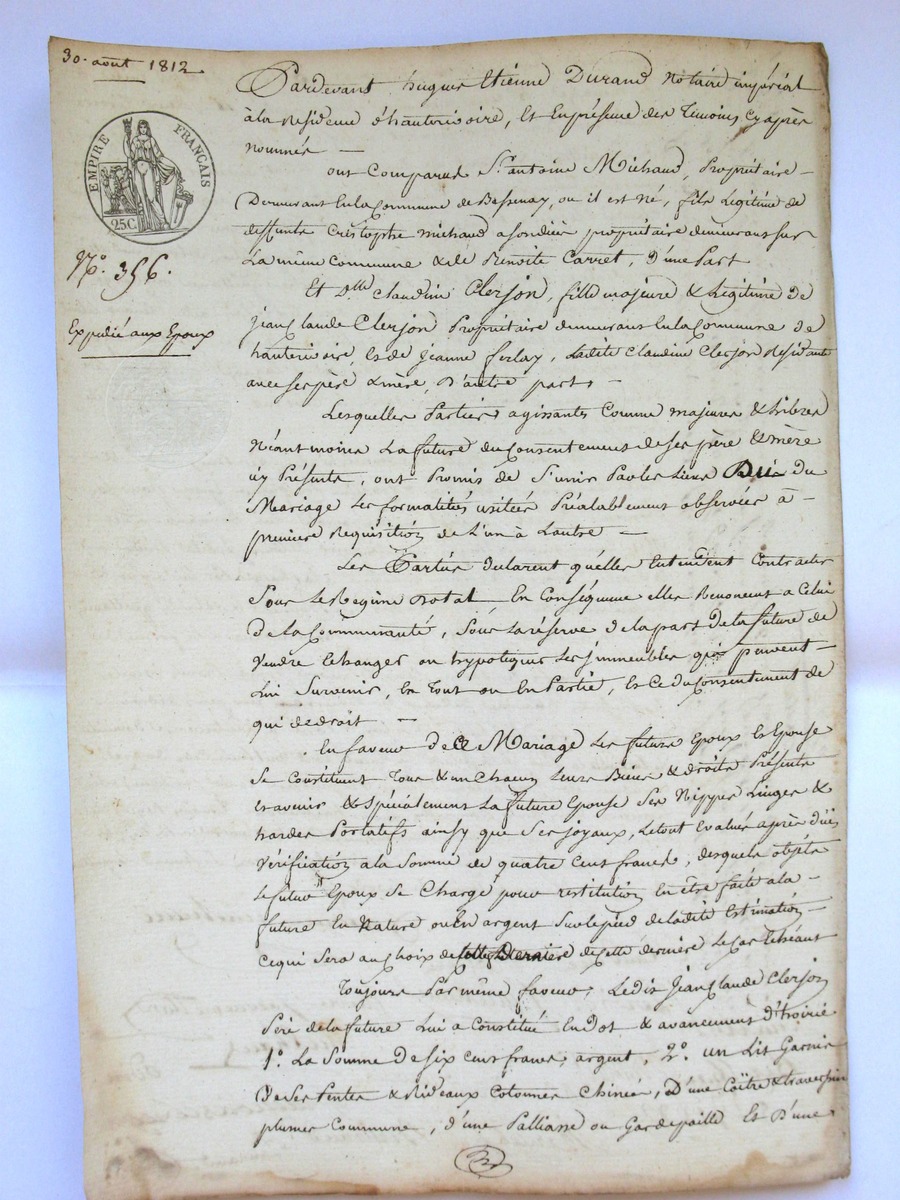 30. août 1812
Pardevant hugues Etienne Durand Notaire impérial
à la Residence d'hauterivoire, Et En présence des Temoins cy après
nommés —
EMPIRE FRANÇAIS
25C.
ont Comparus Sr. antoine Michaud, Propriétaire -
Demeurant En la Commune de Bessenay, ou il est né, fils Legitime de
deffunts Cristophe michaud a son dieu propriétaire demeurant sur
La même Commune & de Benoite Carret, D'une Part
N.° 356.
Et Dlle claudine Clerjon, fille majeure & Legitime de
Jean Claude Clerjon Propriétaire demeurant En la Commune de
hauterivoire, Et de Jeanne ferlay, Ladite Claudine Clerjon Residante
Expedié aux Epoux
avec ses père & mère, D'autre part -
Lesquelles Parties agissants Comme majeures & Libres
Néantmoins La future du Consentement de ses père & mère
icy Présents, ont Promis de S'unir Par les Liens du
Mariage Les formalités usitées Préalablement observées à -
première Requisition de L'un à L'autre —
Les Parties declarent qu'elles Entendent Contracter
Sous Le Regime Dotal En Conséquence elles Renoncent a Celui
De la Communauté, Sous La réserve de la part De la future de
Vendre Echanger ou hypotequer Les Immeubles qui peuvent -
Lui Survenir, En Tout ou En Partie, Et Ce du Consentement de
qui de droit —
En faveur De Ce Mariage Les future Epoux et Epouse
Se Constituent Tous & un Chacun Leurs Biens & droits Présents
et avenir & Spécialement La future Epouse Ses Nippes Linges &
hardes Portatifs ainsy que Ses joyaux, Le tout Evalués après due
Vérification a la Somme de quatre Cent francs, desquels objets
Le futur Epoux Se Charge pour restitution En être faite a la -
future En Nature ou En argent Sur le pied de ladite Estimation -
Ce qui Sera au Choix de Cette Derniere de Cette derniere Le Cas Echéant
Toujours Par même faveur, Ledit Jean Claude Clerjon
Père de la future Lui a Constitué En dot & avancement D'hoirie
1.° La Somme De Six Cent francs, argent, 2.° un Lit Garnis
De Ses Pentes & Rideaux Cotonnes Chinées, D'une Coëtre & traversin
plumes Commune, d'une Palliasse ou Gardepaille Et D'une